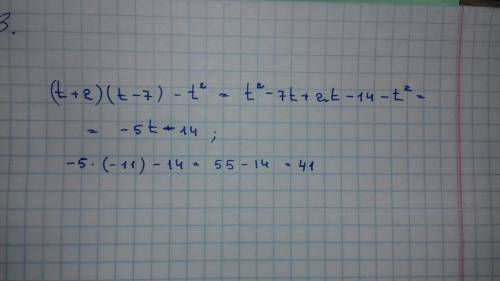 3.
(t+2)(t-7) - t² = t² - 7t + 2t - 14 - t² =
= -5t - 14 ;
-5 · (-11) - 14 = 55 - 14 = 41